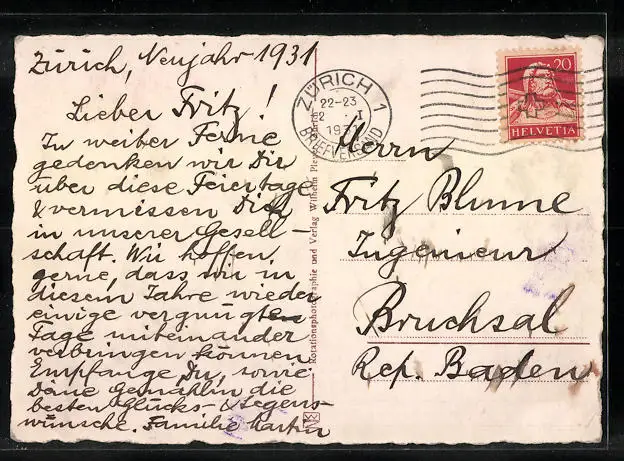 Zürich, Neujahr 1931
Lieber Fritz!
In weiter Ferne
gedenken wir Dir
über diese Feiertage
& vermissen Dich
in unserer Gesell-
schaft. Wir hoffen,
gerne, dass wir in
diesem Jahre wieder
einige vergnügten
Tage miteinander
verbringen können
Empfange Du, sowie
Deine Gemahlin die
besten Glücks- & Segens-
wünsche. Familie Martin
Rotationsphotographie und Verlag Wilhelm Zürich
ZÜRICH 1
22-23
2 . I
1931
BRIEFVERSAND
20
HELVETIA
Herrn
Fritz Blume
Ingenieur
Bruchsal
Rep. Baden